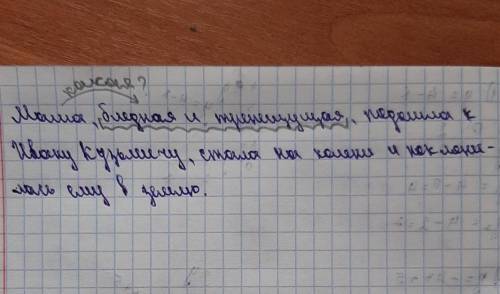 какая?
Маша, бледная и трепещущая, подошла к
Ивану Кузьмичу, стала на колени и поклони-
лась ему в землю.